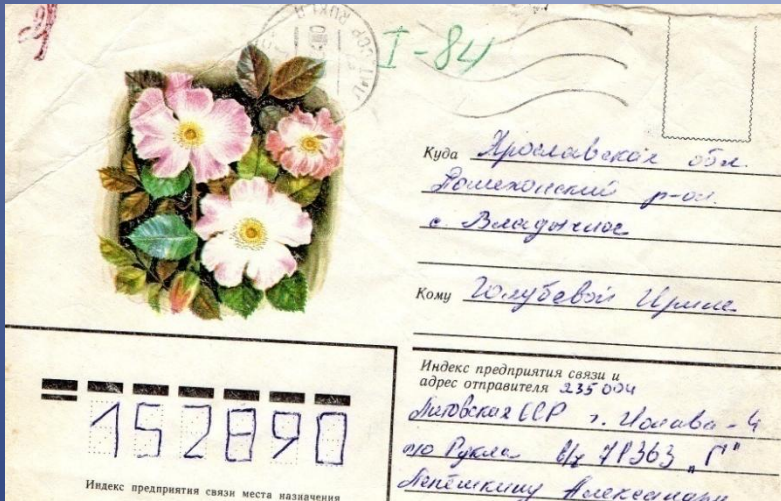 I-84
Куда Ярославская обл.
Пошехонский р-он.
с. Владычное
Кому Голубевой Ирине
Индекс предприятия связи и
адрес отправителя 235004
Литовская ССР г. Ионава-4
п/о Рукла в/ч 71363 „Г"
Лепёшкину Александру
152890
Индекс предприятия связи места назначения